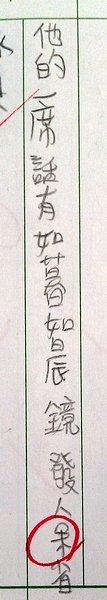 他的一席話有如暮智辰鏡發人果省